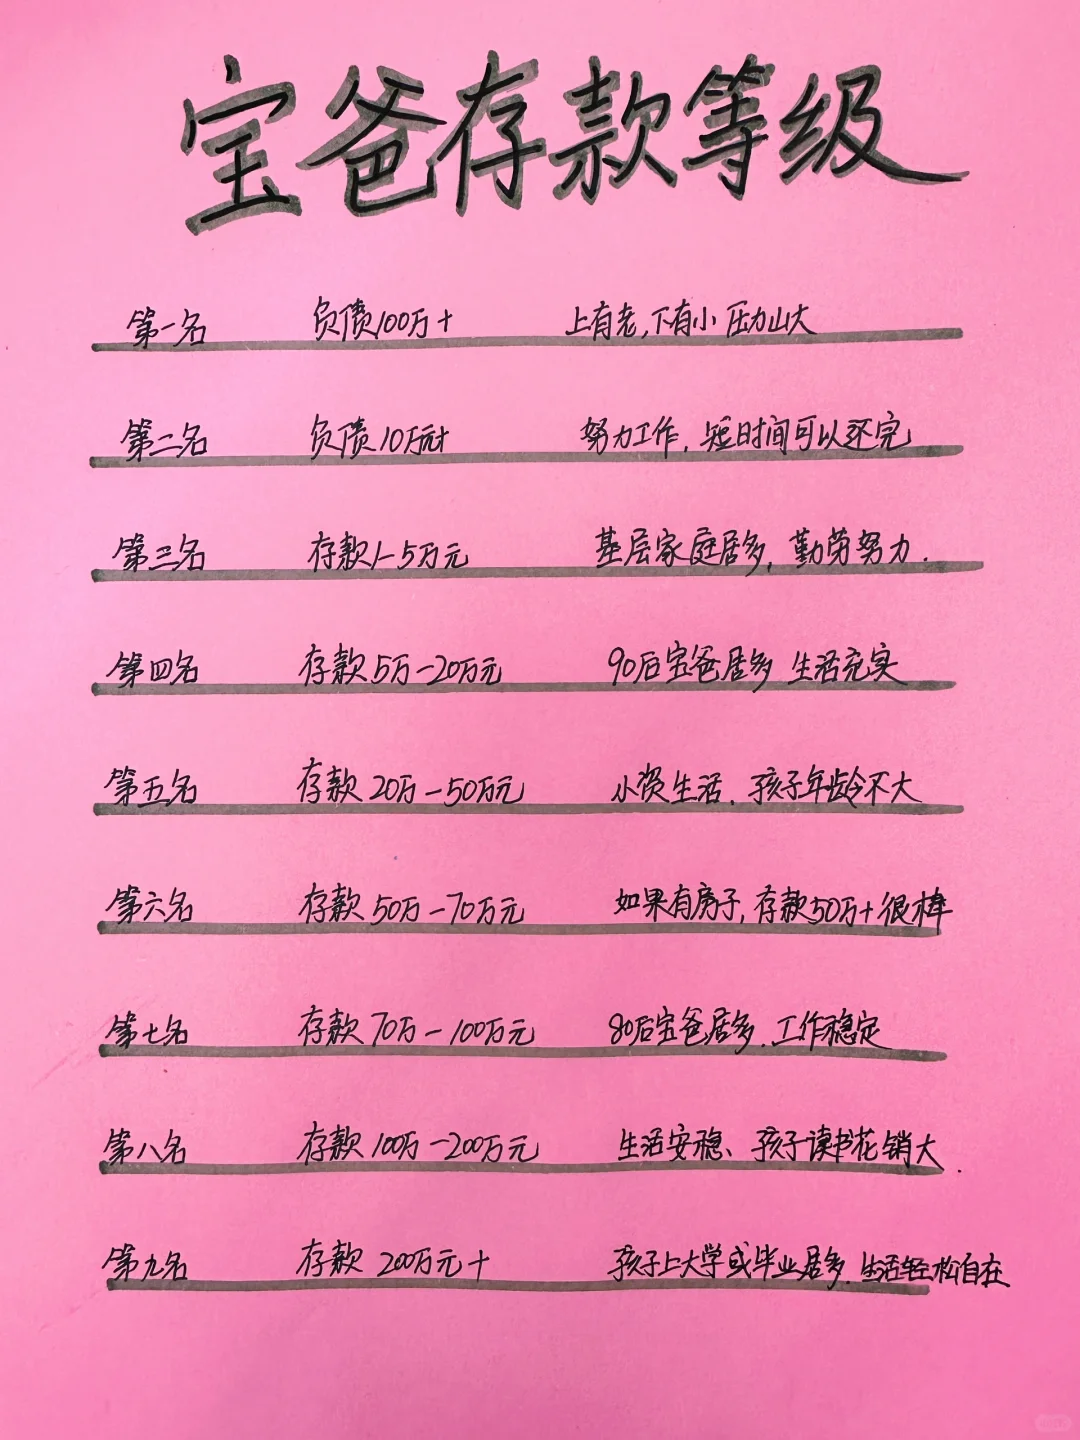 宝爸存款等级
第一名 负债100万+ 上有老,下有小 压力山大
第二名 负债10万元+ 努力工作, 短时间可以还完
第三名 存款1-5万元 基层家庭居多, 勤劳努力.
第四名 存款5万-20万元 90后宝爸居多 生活充实
第五名 存款20万-50万元 小资生活. 孩子年龄不大
第六名 存款50万-70万元 如果有房子, 存款50万+很棒
第七名 存款70万-100万元 80后宝爸居多. 工作稳定
第八名 存款100万-200万元 生活安稳、孩子读书花销大.
第九名 存款200万元+ 孩子上大学或毕业居多. 生活轻松自在